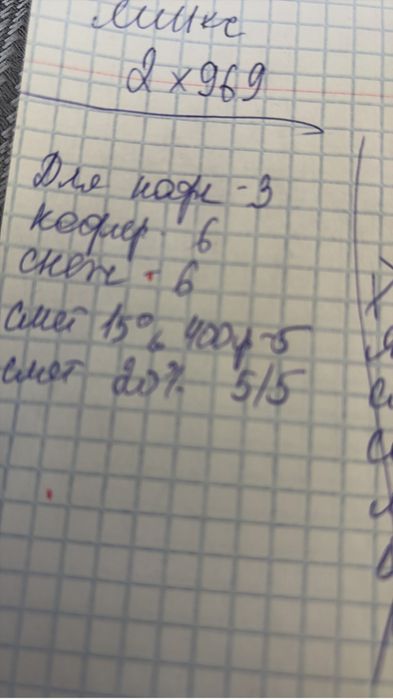 микс
2 х 969
Для кофе - 3
кефир - 6
снеж - 6
смет 15% 400г-5
смет 20% 5/5